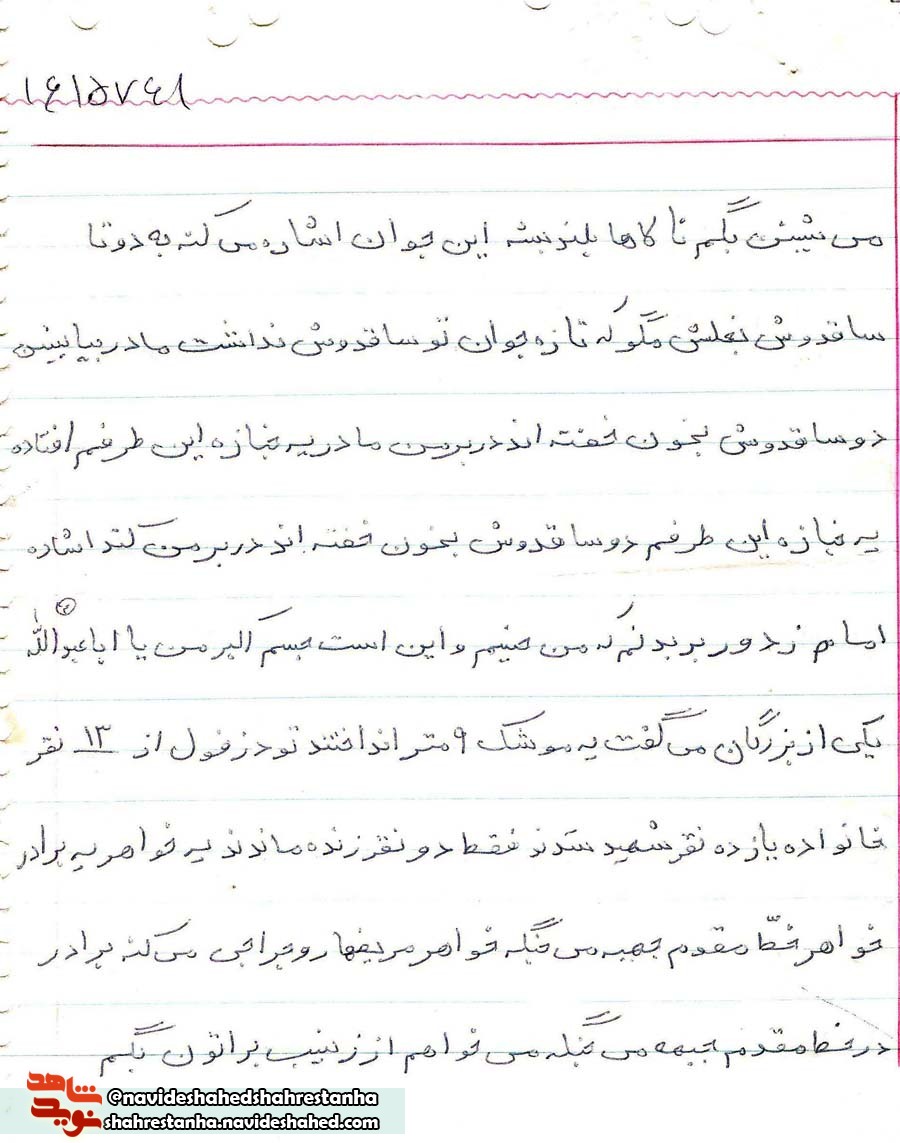 ۱۶۱۵۷۴۸
می شینن بگم تا کاها بلند بشه این جوان اشاره می کنه به دوتا
ساقدوش بغلش مگو که تازه جوان تو ساقدوش نداشت مادر بیا ببین
دو ساقدوش بخون خفته اند در بر من مادر یه جنازه این طرفم افتاده
یه جنازه این طرفم دو ساقدوش بخون خفته اند در بر من کند اشاره
امام ز دور بر بدنم که من حسینم و این است جسم اکبر من یا اباعبدالله
یکی از بزرگان می گفت یه موشک ۹ متر انداختند تو دزفول از ۱۳ نفر
خانواده یازده نفر شهید شدند فقط دو نفر زنده ماندند یه خواهر یه برادر
خواهر خطّ مقدم جبهه می جنگه خواهر مریضها رو جراحی می کنه برادر
در خط مقدم جبهه می جنگه می خواهم از زینب براتون بگم
شاهد
نوید
@navideshahedshahrestanha
shahrestanha.navideshahed.com